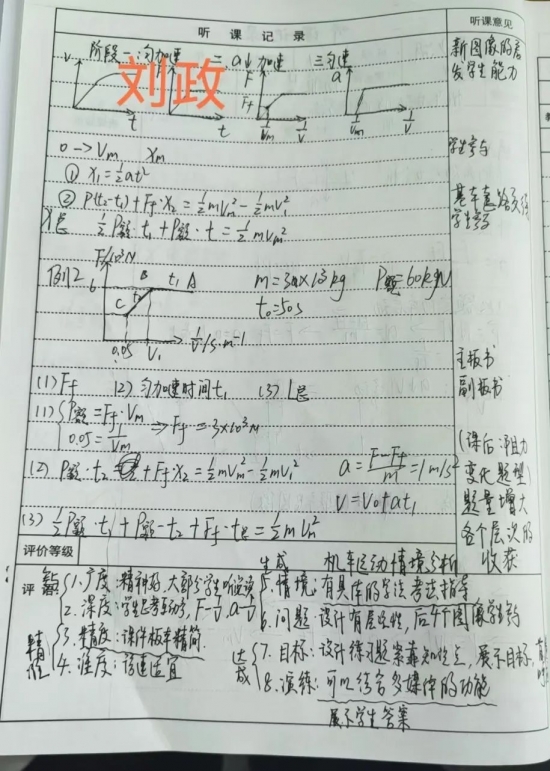 听课记录
听课意见
阶段一:匀加速 二 a↓加速 三匀速
刘政
v t
t
F Ff 1/Vm 1/V
a 1/Vm 1/V
新图像的
发学生能力
0→Vm Xm
学生参与
① X₁=½at²
② P(t₂-t₁)+Ff·X₂=½mVm²-½mV₁²
X总 ½P额·t₁+P额·t=½mVm²
例2
F/10³N
6
B t₁ A
C t₂
0.05 1/V₁ 1/V/s·m⁻¹
m=3.0×10³kg P额=60kW
t₀=50s
主板书
副板书
(1) Ff (2) 匀加速时间t₁ (3) L总
(1) {P额=Ff·Vm
0.05=1/Vm ⇒Ff=3×10³N
(2) P额·t₂+Ff·X₂=½mVm²-½mV₁² a=(F-Ff)/m=1m/s²
V=V₀+at₁
(3) ½P额·t₁+P额·t₂+Ff·t总=½mVm²
(课后:阻力
变化题型
题量增大
各个层次的
收获
评价等级
生成 机车运动情境分析
评
1.广度:精神好,大部分学生响应
2.深度:学生思考主动,F-1/V,a-1/V
精准
3.精度:课件板书精简
4.准度:语速适宜
5.情境:有具体的学法考法指导
6.问题:设计有层次性,后4个图像学生
达成
7.目标:设计练习题案靠知识点,展示目标,
8.演练:可以结合多媒体的功能
展示学生答案